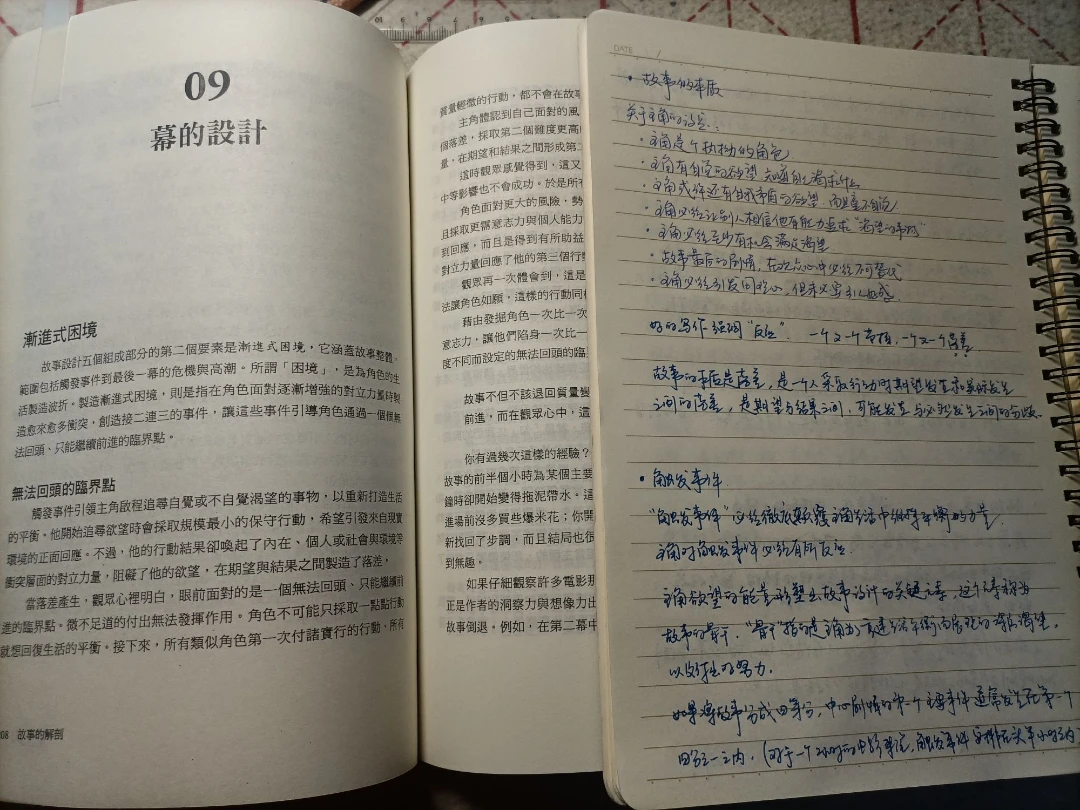 09
幕的設計
漸進式困境
故事設計五個組成部分的第二個要素是漸進式困境，它涵蓋故事整體，
範圍包括觸發事件到最後一幕的危機與高潮。所謂「困境」，是為角色的生
活製造波折。製造漸進式困境，則是指在角色面對逐漸增強的對立力量時製
造愈來愈多衝突，創造接二連三的事件，讓這些事件引導角色通過一個個無
法回頭、只能繼續前進的臨界點。
無法回頭的臨界點
觸發事件引領主角啟程追尋自覺或不自覺渴望的事物，以重新打造生活
的平衡。他開始追尋欲望時會採取規模最小的保守行動，希望引發來自現實
環境的正面回應。不過，他的行動結果卻喚起了內在、個人或社會與環境等
衝突層面的對立力量，阻礙了他的欲望，在期望與結果之間製造了落差，
當落差產生，觀眾心裡明白，眼前面對的是一個無法回頭、只能繼續前
進的臨界點。微不足道的付出無法發揮作用。角色不可能只採取一點點行動
就想回復生活的平衡。接下來，所有類似角色第一次付諸實行的行動、所有
08 故事的解剖
質量輕微的行動，都不會在故事
主角體認到自己面對的風
個落差，採取第二個難度更高
量，在期望和結果之間形成第二
這時觀眾感覺得到，這又
中等影響也不會成功。於是所有
角色面對更大的風險，勢
且採取更需意志力與個人能力
到回應，而且是得到有所助益
對立力量回應了他的第三個行動
觀眾再一次體會到，這是
法讓角色如願，這樣的行動同樣
藉由發掘角色一次比一次
意志力，讓他們陷身一次比一
度不同而設定的無法回頭的臨
故事不但不該退回質量變
前進，而在觀眾心中，這
你有過幾次這樣的經驗？
故事的前半個小時為某個主要
鐘時卻開始變得拖泥帶水。這
進場前沒多買些爆米花；你開
新找回了步調，而且結局也很
到無趣。
如果仔細觀察許多電影那
正是作者的洞察力與想像力出
故事倒退。例如，在第二幕中
DATE
·故事的本质
关于主角的设定：
·主角是个执拗的角色
·主角有自觉的欲望 知道自己渴求什么
·主角或许还有自我矛盾的欲望，而且是不自觉
·主角必须让别人相信他有能力追求"渴望的事物"
·主角必须至少有机会满足渴望
·故事最后的剧情，在观众心中必须不可替代
·主角必须引发同理心，但未必要引人好感
好的写作强调"反应"。一个又一个转折，一个又一个落差
故事的本质是落差，是一个人采取行动时期望发生和实际发生
之间的落差，是期望与结果之间，可能发生与必然发生之间的断裂。
·触发事件
"触发事件"必须彻底颠覆主角生活中维持平衡的力量
主角对触发事件必须有所反应
主角欲望的能量形塑出故事设计的关键元素，这个元素称为
故事的骨干。"骨干"指的是主角为了重建生活平衡而展现的深层渴望，
以及付出的努力。
如果将故事分成四等分，中心剧情的第一个主要事件通常发生在第一个
四分之一之内。（对于一个2小时的电影来说，触发事件安排在头半小时之内